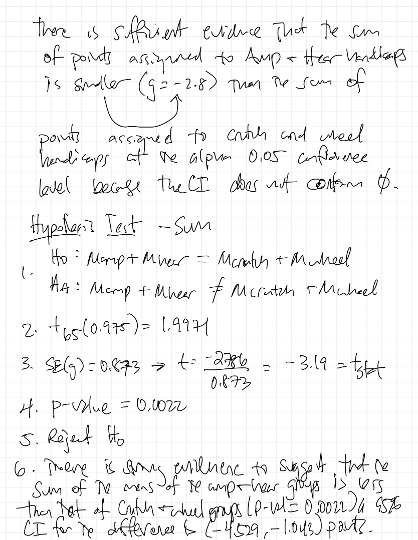 there is sufficient evidence that the sum
of points assigned to Amp + Hear handicaps
is smaller (g = -2.8) than the sum of
points assigned to crutch and wheel
handicaps at the alpha 0.05 confidence
level because the CI does not contain 0.
Hypothesis Test - Sum
1. H0: Mamp + Mhear = Mcrutch + Mwheel
HA: Mamp + Mhear ≠ Mcrutch + Mwheel
2. t65(0.975) = 1.9971
3. SE(g) = 0.873 → t = -2.786 / 0.873 = -3.19 = tstat
4. p-value = 0.0022
5. Reject H0
6. There is strong evidence to suggest that the
sum of the means of the amp + hear groups is less
than that of crutch + wheel groups (p-val = 0.0022). A 95%
CI for the difference is (-4.529, -1.043) points.